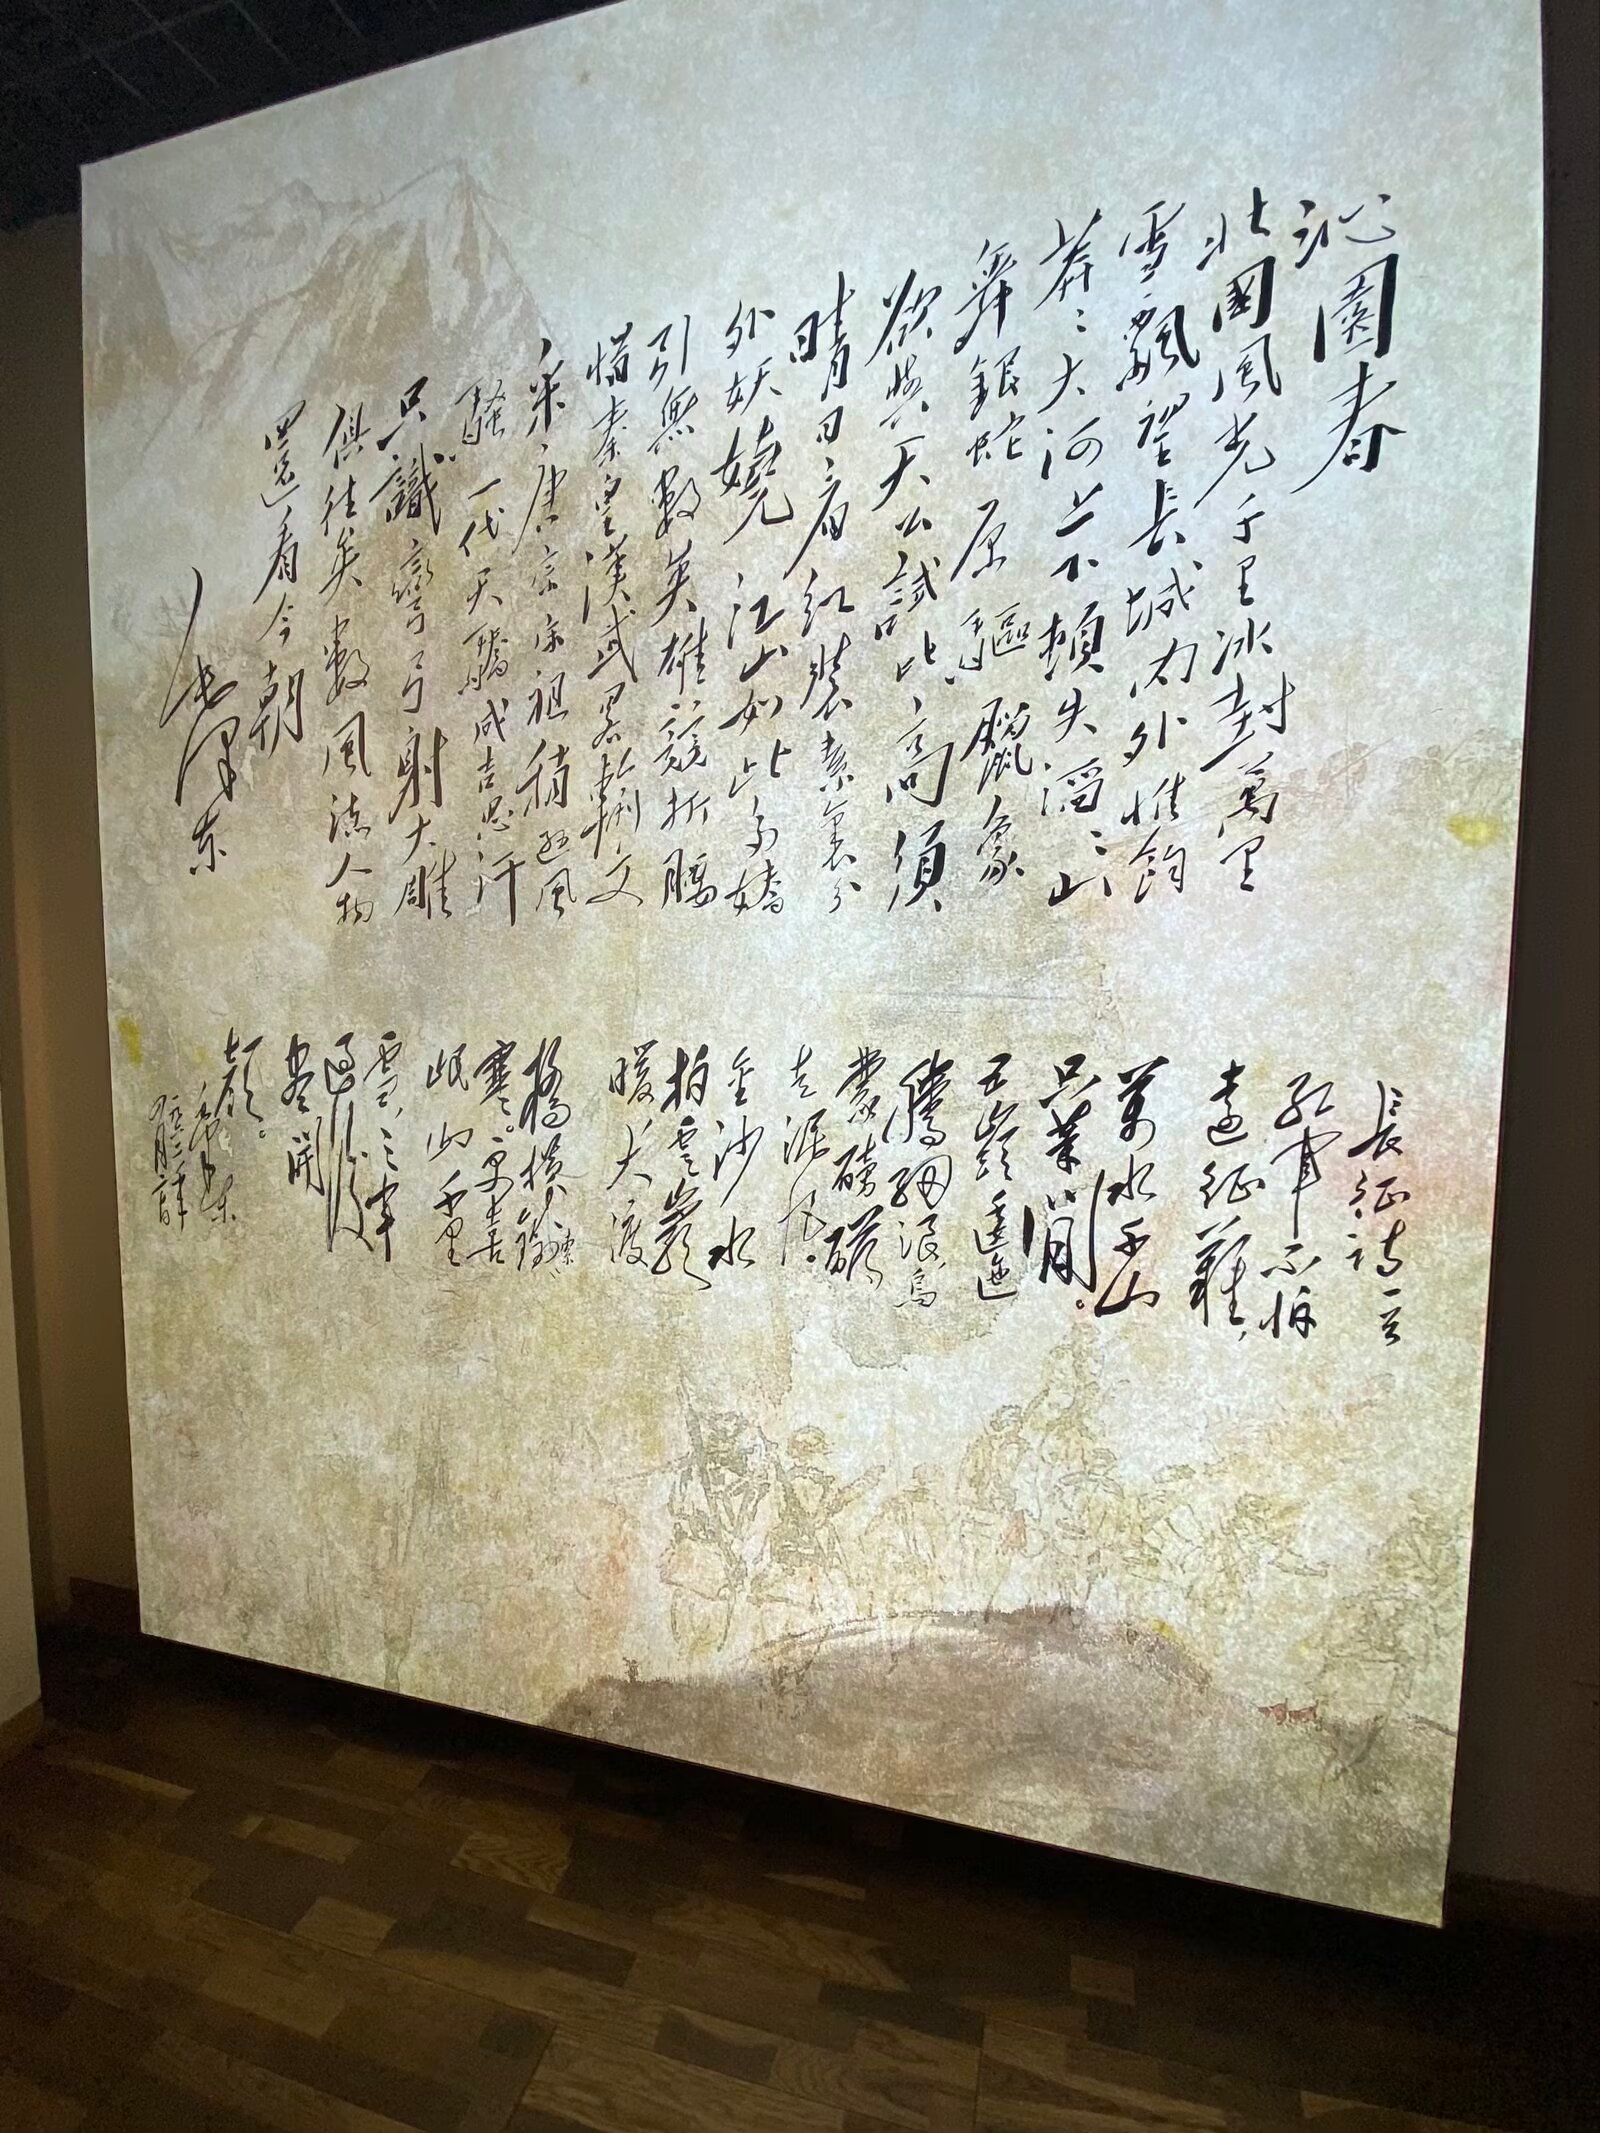 沁園春
北國風光千里冰封萬里
雪飄望長城内外惟餘
莽〻大河上下頓失滔〻山
舞銀蛇原驅臘象
欲與天公試比高須
晴日看紅裝素裹分
外妖嬈江山如此多嬌
引無數英雄競折腰
惜秦皇漢武略輸文
采唐宗宋祖稍遜風
騷一代天驕成吉思汗
只識彎弓射大雕
俱往矣數風流人物
還看今朝
毛澤東
長征詩一首
紅軍不怕
遠征難，
萬水千山
只等閒。
五嶺逶迤
騰細浪烏
蒙磅礴
走泥丸。
金沙水
拍雲崖
暖大渡
橋橫鐵索
寒。更喜
岷山千里
雪，三軍
過後
盡開
顏。
毛澤東